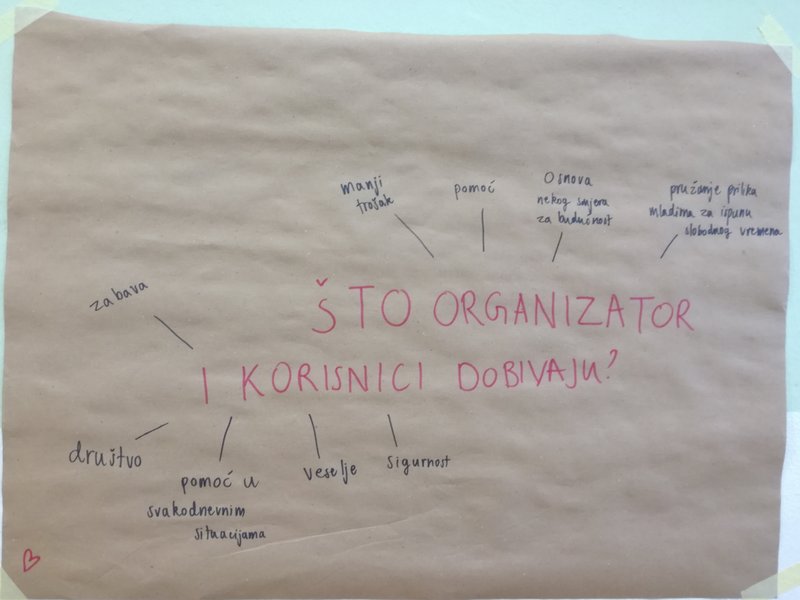 manji
trošak
pomoć
Osnova
nekog smjera
za budućnost
pružanje prilika
mladima za ispunu
slobodnog vremena
zabava
ŠTO ORGANIZATOR
I KORISNICI DOBIVAJU?
društvo
pomoć u
svakodnevnim
situacijama
veselje
sigurnost